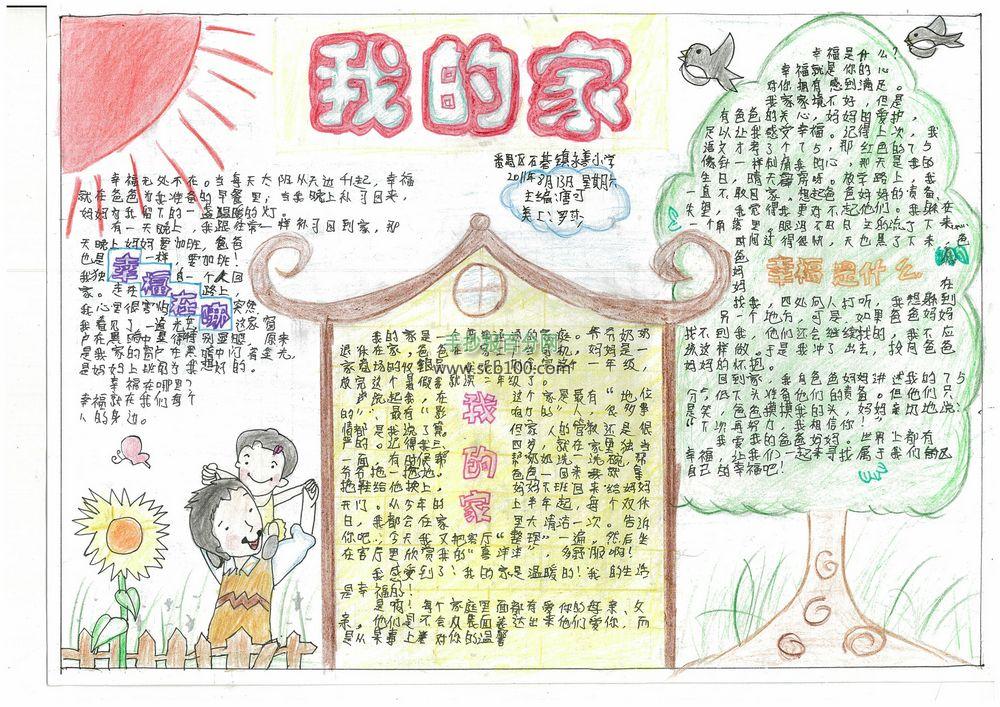 我的家
番禺区石碁镇永善小学
2011年8月13日 星期六
主编:唐可
幸福无处不在。当每天太阳从天边升起,幸福
就在爸爸为我准备的早餐里;当我晚上补习回来,
妈妈为我留下的一盏温暖的灯。
有一天晚上,我跟往常一样补习回到家,那
天晚上妈妈要加班,爸爸
也是 一样,要加班!
我独 有一个人回
家。走在 路上,
我心里很害怕 突然
我看见了一道光 这家窗
户在黑暗中 显得特别显眼 原来
是我家的窗户在黑暗中闪着金光,
幸福在哪里?
幸福就在我们每个
人的身边。
幸福在哪
我的家是一
退休在家,爸爸
家商场的收银员 一年级,
放完这个暑假就读二年级了。
手抄报资源网
www.scb100.com
我的家
虎说起来,在 这个家是最有“地位
的”、最有“影 响力的”人,很多事
情都是我说了算。 但家人的管教还是很
严的。记得我三、 四岁,就在家里独当
一面,有时候帮 帮奶奶洗一洗碗,帮
爷爷拖一拖地。 爸爸一回来我就拿
把鞋给他换上。 妈妈下班回来给妈妈
开门。从今年的 上半年起,每个双休
日,我都会在家 里大清洁一次。告诉
你吧,今天我又把客厅“整理”一遍,然后坐
在客厅里欣赏我的“喜洋洋”,多舒服啊!
我感受到了:我的家是温暖的!我的生活
是幸福的!
是啊!每个家庭里面都有爱你的母亲、父
亲。他们是不会从表面表达出来他们爱你,而
是从某事上表对你的温馨
幸福是什么?
幸福就是你的心
对你拥有感到满足。
我家家境不好,但是
有爸爸的关心,妈妈的爱护,
足以让我感受幸福。记得上次,我
语文才考了个75,那红色的75
像针一样刺痛我的心,那天是我的
生日,晴天霹雳呀。放学路上,我
一直不敢回家。想起爸爸妈妈的责备、
失望,我觉得我更对不起他们。我躲在
一个角落里,眼泪不由自主的流了下来
时间过得很快,天也黑了下来,爸
爸
妈妈 在
幸福是什么
找我,四处向人打听,我想躲到
另一个地方,可是,如果爸爸妈妈
找不到我,他们还会继续找的,我不应
该这样做。于是我冲了出去,投向爸爸
妈妈的怀抱。
回到家,我向爸爸妈妈讲述我的75
分,低下头准备他们的责备。但他们只
是笑,爸爸摸摸我的头,妈妈亲切地说:
“下次再努力,我相信你!”
我爱我的爸爸妈妈。世界上都有
幸福,让我们一起来寻找属于我们
自己的幸福吧!